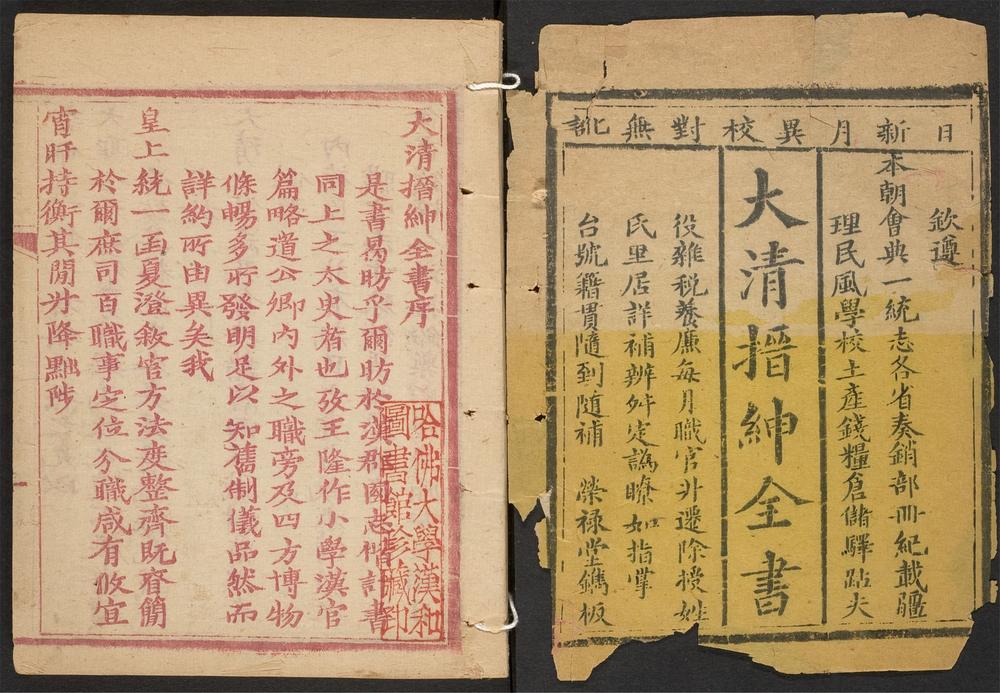 日新月異校對無訛
欽遵
本朝會典一統志各省奏銷部冊紀載疆
理民風學校土產錢糧倉儲驛站夫
大清搢紳全書
役雜稅養廉每月職官升遷除授姓
氏里居詳補辨舛定譌瞭如指掌
台號籍貫隨到随補 榮祿堂鐫板
大清搢紳全書序
是書曷昉乎爾昉於漢郡國志偕計書
同上之太史者也攷王隆作小學漢官
篇略道公卿內外之職旁及四方博物
條暢多所發明足以知舊制儀品然而
詳約所由異矣我
皇上統一函夏澄敘官方法度整齊既眘簡
於爾庶司百職事定位分職咸有攸宜
宵旰持衡其間升降黜陟
哈佛大學漢和
圖書館珍藏印